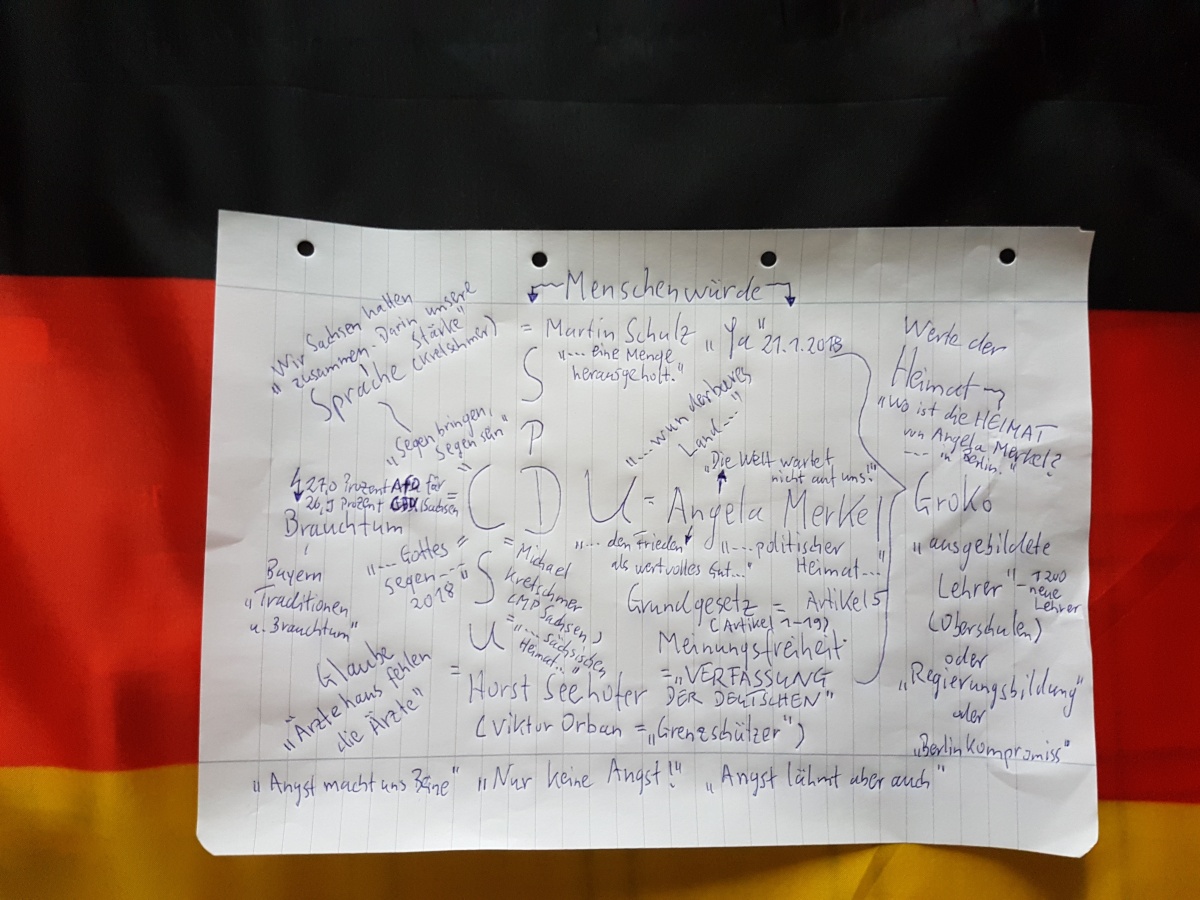 Menschenwürde
"Wir Sachsen halten
zusammen. Darin unsere
Stärke"
Sprache (Kretschmer)
= Martin Schulz "Ja" 21.1.2018
"... eine Menge
herausgeholt."
S
P
"Segen bringen,
Segen sein"
"... wunderbares
Land ..."
"Die Welt wartet
nicht auf uns!"
27,0 Prozent AfD für
26,9 Prozent CDU (Sachsen
Brauchtum
= CDU = Angela Merkel
"... den Frieden
als wertvolles Gut..."
"... politischer
Heimat..."
"... Gottes
Segen ...
2018"
S
U
= Michael
Kretschmer
(MP Sachsen)
= "... sächsischen
Heimat..."
Bayern
"Traditionen
u. Brauchtum"
Grundgesetz = Artikel 5
(Artikel 1-19)
Meinungsfreiheit
= "VERFASSUNG
DER DEUTSCHEN"
Glaube
"Ärztehaus fehlen
die Ärzte"
= Horst Seehofer
(Viktor Orban = "Grenzshützer")
Werte der
Heimat
"Wo ist die HEIMAT
von Angela Merkel?
--- in Berlin."
GroKo
"ausgebildete
Lehrer" - 1200
neue
Lehrer
(Oberschulen)
oder
"Regierungsbildung"
oder
"Berlin Kompromiss"
"Angst macht uns Beine" "Nur keine Angst!" "Angst lähmt aber auch"